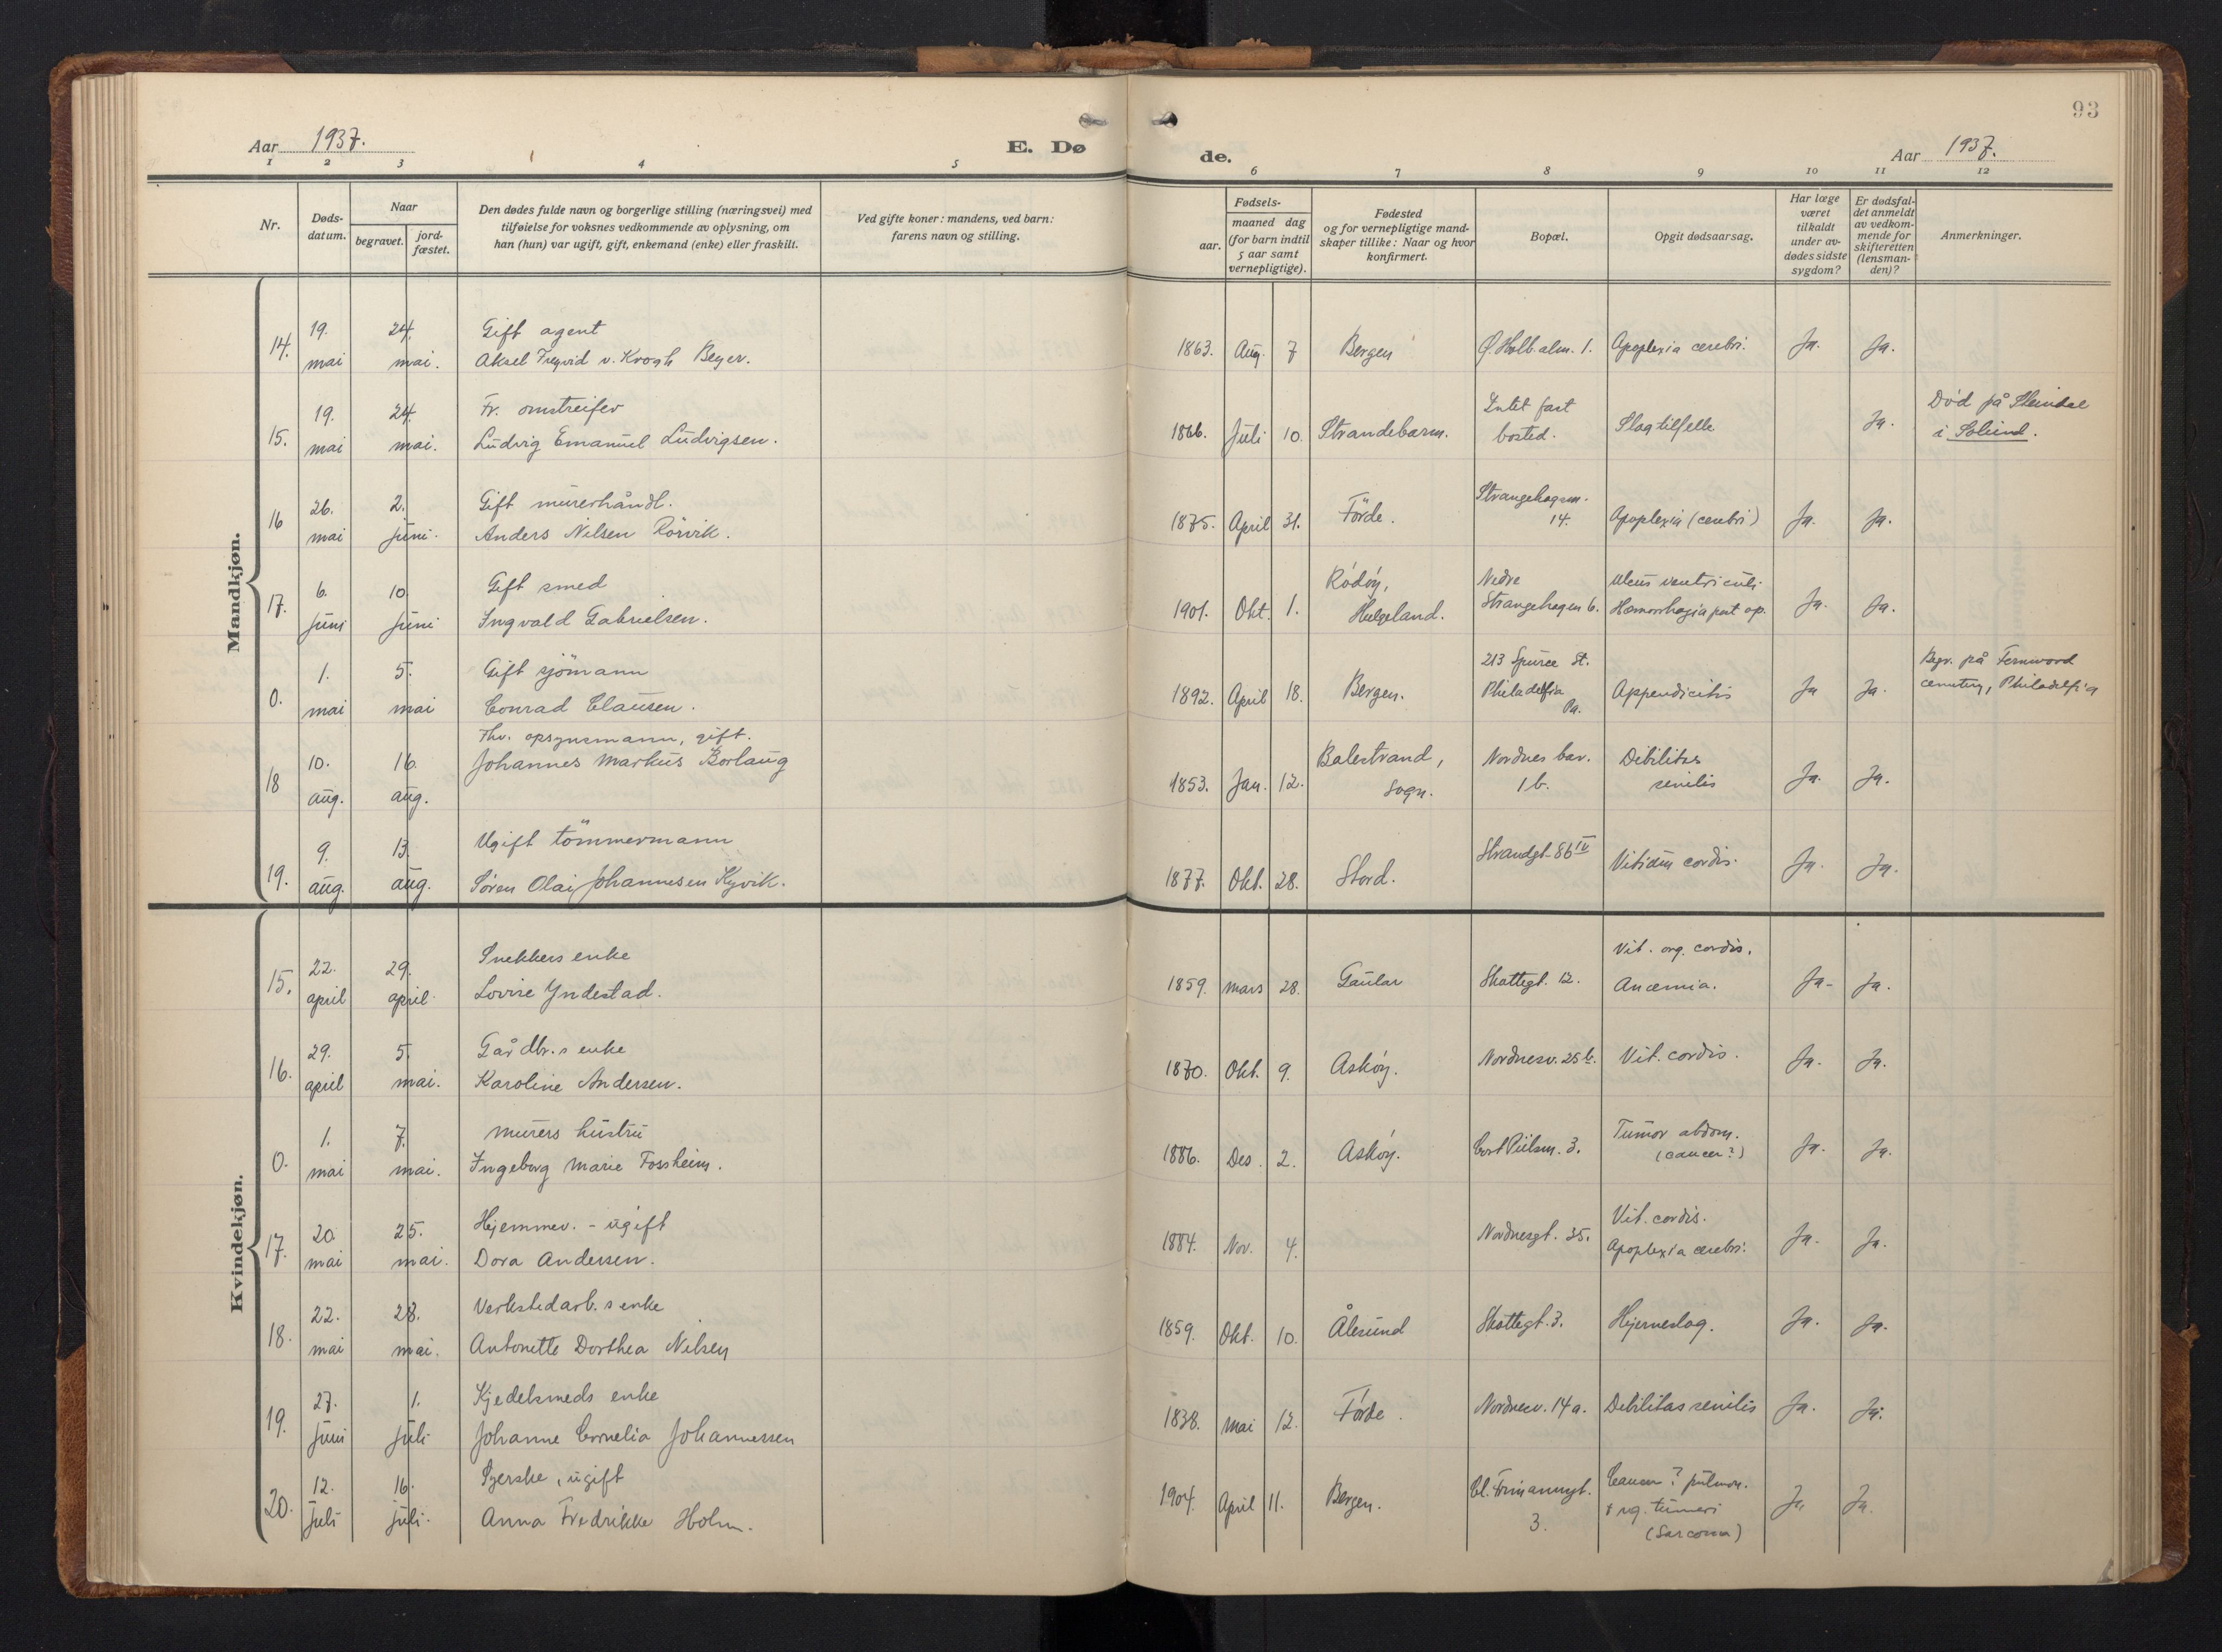 93
Aar 1937.
E. Døde.
Aar 1937.
1 2 3 4 5 6 7 8 9 10 11 12
Nr.
Døds-
datum.
Naar
begravet.
jord-
fæstet.
Den dødes fulde navn og borgerlige stilling (næringsvei) med
tilføielse for voksnes vedkommende av oplysning, om
han (hun) var ugift, gift, enkemand (enke) eller fraskilt.
Ved gifte koner: mandens, ved barn:
farens navn og stilling.
Fødsels-
aar.
maaned dag
(for barn indtil
5 aar samt
vernepligtige).
Fødested
og for vernepligtige mand-
skaper tillike: Naar og hvor
konfirmert.
Bopæl.
Opgit dødsaarsag.
Har læge
været
tilkaldt
under av-
dødes sidste
sygdom?
Er dødsfal-
det anmeldt
av vedkom-
mende for
skifteretten
(lensman-
den)?
Anmerkninger.
Mandkjøn.
14. 19. mai 24. mai. Gift agent
Aksel v. Krogh Beyer. 1863. Aug. 7 Bergen Ø. Holb.alm. 1. Apoplexia cerebri. Ja. Ja.
15. 19. mai 24. mai. Fr. omstreifer
Ludvig Emanuel Ludvigsen. 1866. Juli 10. Strandebarm. Intet fast
bosted. Slagtilfelle Ja. Død på Steindal
i Solund.
16 26. mai 2. juni. Gift murerhåndl.
Anders Nilsen Rörvik. 1875. April 31. Förde. Strangehagen.
14. Apoplexia (cerebri) Ja. Ja.
17. 6. juni 10 juni Gift smed
Ingvald Gabrielsen. 1901. Okt. 1. Rödöy,
Helgeland. Nedre
Strangehagen 6. Ulcus ventriculi
Hæmorrhagia post op. Ja. Ja.
0. 1. mai 5. mai Gift sjömann
Conrad Clausen. 1892. April 18. Bergen. 213 Spuree St.
Philadelfia
Pa. Appendicitis Ja Ja. Begr. på Fernwood
cemetery, Philadelfia
18 10. aug. 16. aug. Fhv. opsynsmann, gift.
Johannes Markus Borlaug 1853. Jan. 12. Balestrand,
Sogn. Nordnes bar.
1b. Dibilitas
senilis Ja. Ja.
19. 9. aug. 13. aug. Ugift tömmermann
Søren Olai Johannesen Kyvik. 1877. Okt. 28. Stord. Strandgt. 86 IV Vitium cordis. Ja. Ja.
Kvindekjøn.
15. 22. april 29. april Snekkers enke
Lovise Yndestad. 1859. mars 28. Gaular Skottegt. 12. Vit. org. cordis.
Anæmia. Ja- Ja.
16. 29. april 5. mai. Gårdbr.s enke
Karoline Andersen. 1870. Okt. 9. Asköy. Nordnesv. 25 b. Vit. cordis. Ja. Ja.
0. 1. mai 7. mai. Murers hustru
Ingeborg Marie Fossheim. 1886. Des. 2. Asköy. Cort Piilsm. 3. Tumor abdom.
(cancer?) Ja. Ja.
17. 20. mai 25. mai. Hjemmev. - ugift
Dora Andersen. 1884. Nov. 4. Nordnesgt. 35. Vit. cordis.
Apoplexia cerebri. Ja. Ja.
18. 22. mai 28. mai. Verkstedarb.s enke
Antonette Dorthea Nilsen 1859. Okt. 10. Ålesund Skottegt. 3. Hjerneslag. Ja. Ja.
19. 27. juni 1. juli Kjedelsmeds enke
Johanne Cornelia Johannessen 1838. Mai 12. Förde. Nordnesv. 14a. Debilitas senilis Ja. Ja.
20. 12. juli 16. juli. Syerske, ugift
Anna Fredrikke Holm. 1904. April 11. Bergen. Cl. Frimannsgt.
3. Cancer? pulmon.
tumori
(Sarcoma) Ja. Ja.